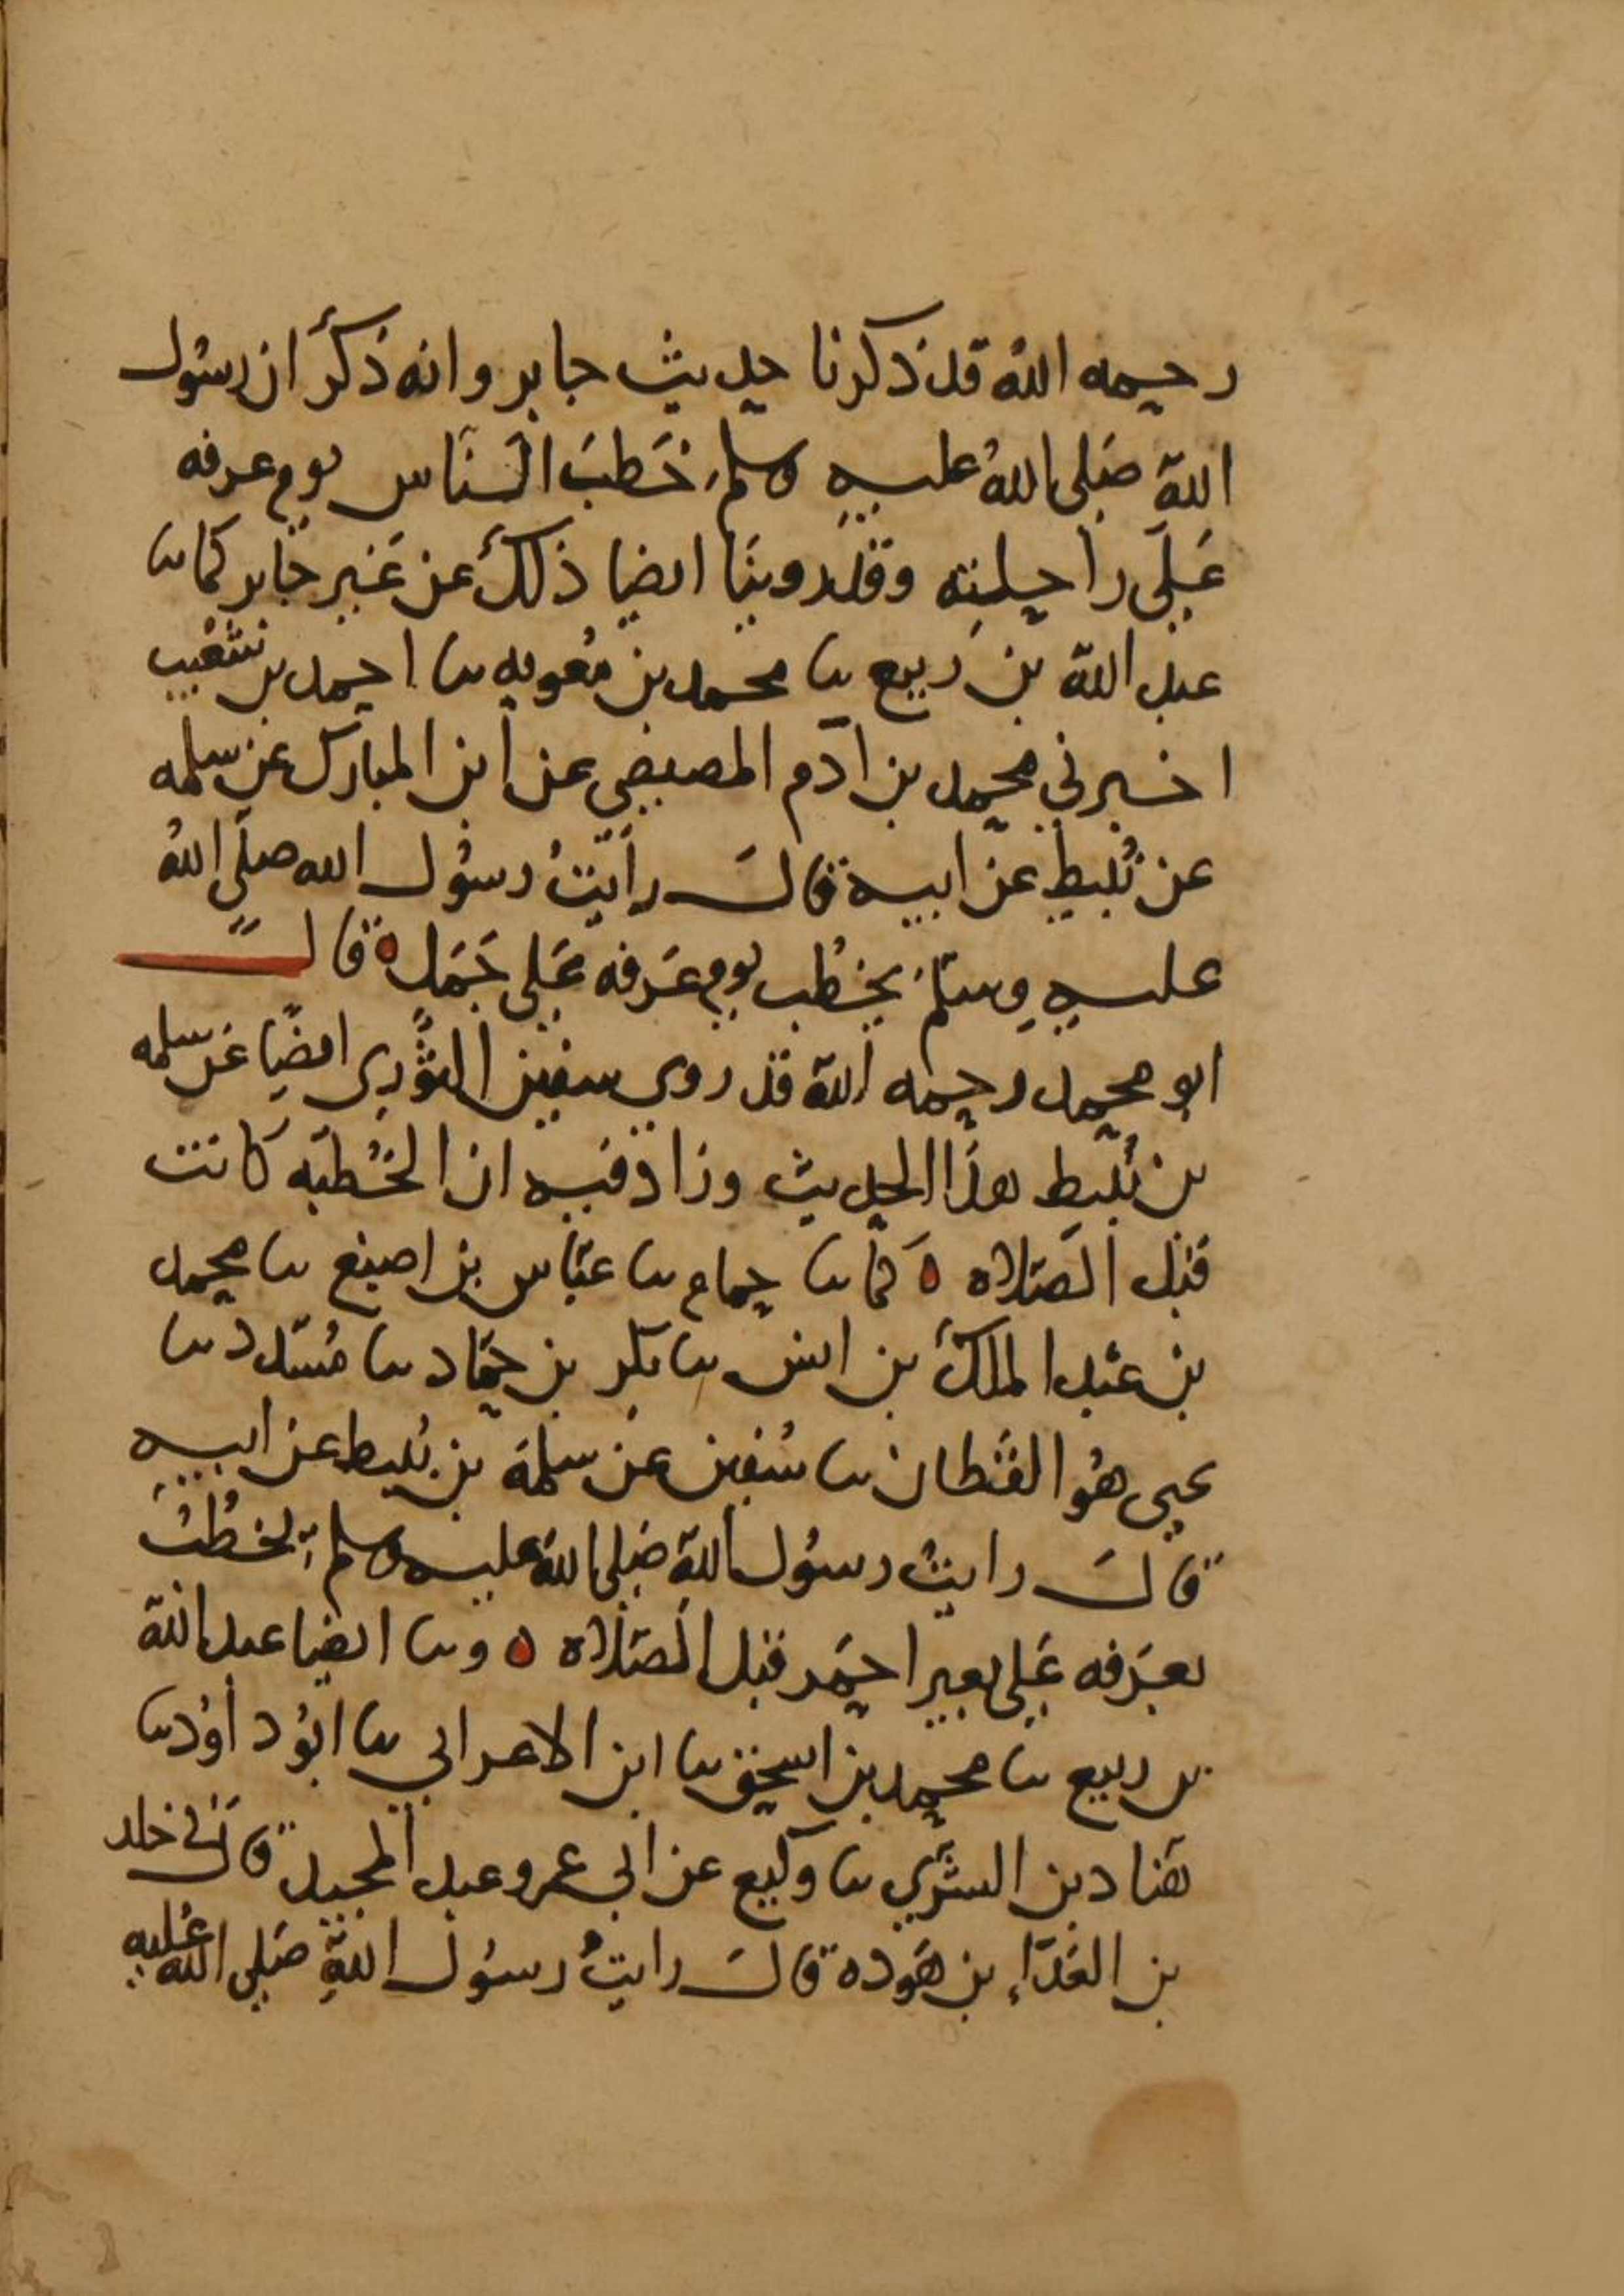 رحمه الله قد ذكرنا حديث جابر وانه ذكر ان رسول
الله صلى الله عليه وسلم خطب الناس يوم عرفه
على راحلته وقد روينا ايضا ذلك عن غير جابر كما نا
عبد الله بن ربيع نا محمد بن معويه نا احمد بن شعيب
اخبرني محمد بن ادم المصيصي عن ابن المبارك عن سلمه
عن نُبيط عن ابيه قال رأيتُ رسُول الله صلى اللهُ
عليه وسلم يخطُب يوم عَرفه عَلى جَمَل ه قال
ابو محمد رحمه الله قد روى سفين الثوري ايضًا عن سلمه
بن نُبيط هذا الحديث وزاد فيه ان الخُطبَه كانت
قبل الصَلاه ه كما نا حمام نا عبّاس بن اصبغ نا محمد
بن عبد الملك بن ايمن نا بكر بن حمّاد نا مُسَدد نا
يحيى هُو القَطان نا سُفين عن سلمَة بن نُبيط عن ابيه
قالَ رايتُ رسُول الله صَلى الله عليه وسلم يخطُبُ
بعَرفه عَلى بعير احمَر قبل الصَلاه ه ونا ايضا عبد الله
بن ربيع نا محمد بن اسحق نا ابن الاعرابي نا ابُو داوُد نا
هَناد بن السَّري نا وكيع عن ابي عمرو عبد المجيد قال ني خلد
بن العَدّاءِ بن هَوذه قالَ رايتُ رسُول اللهِ صَلى الله عَليه